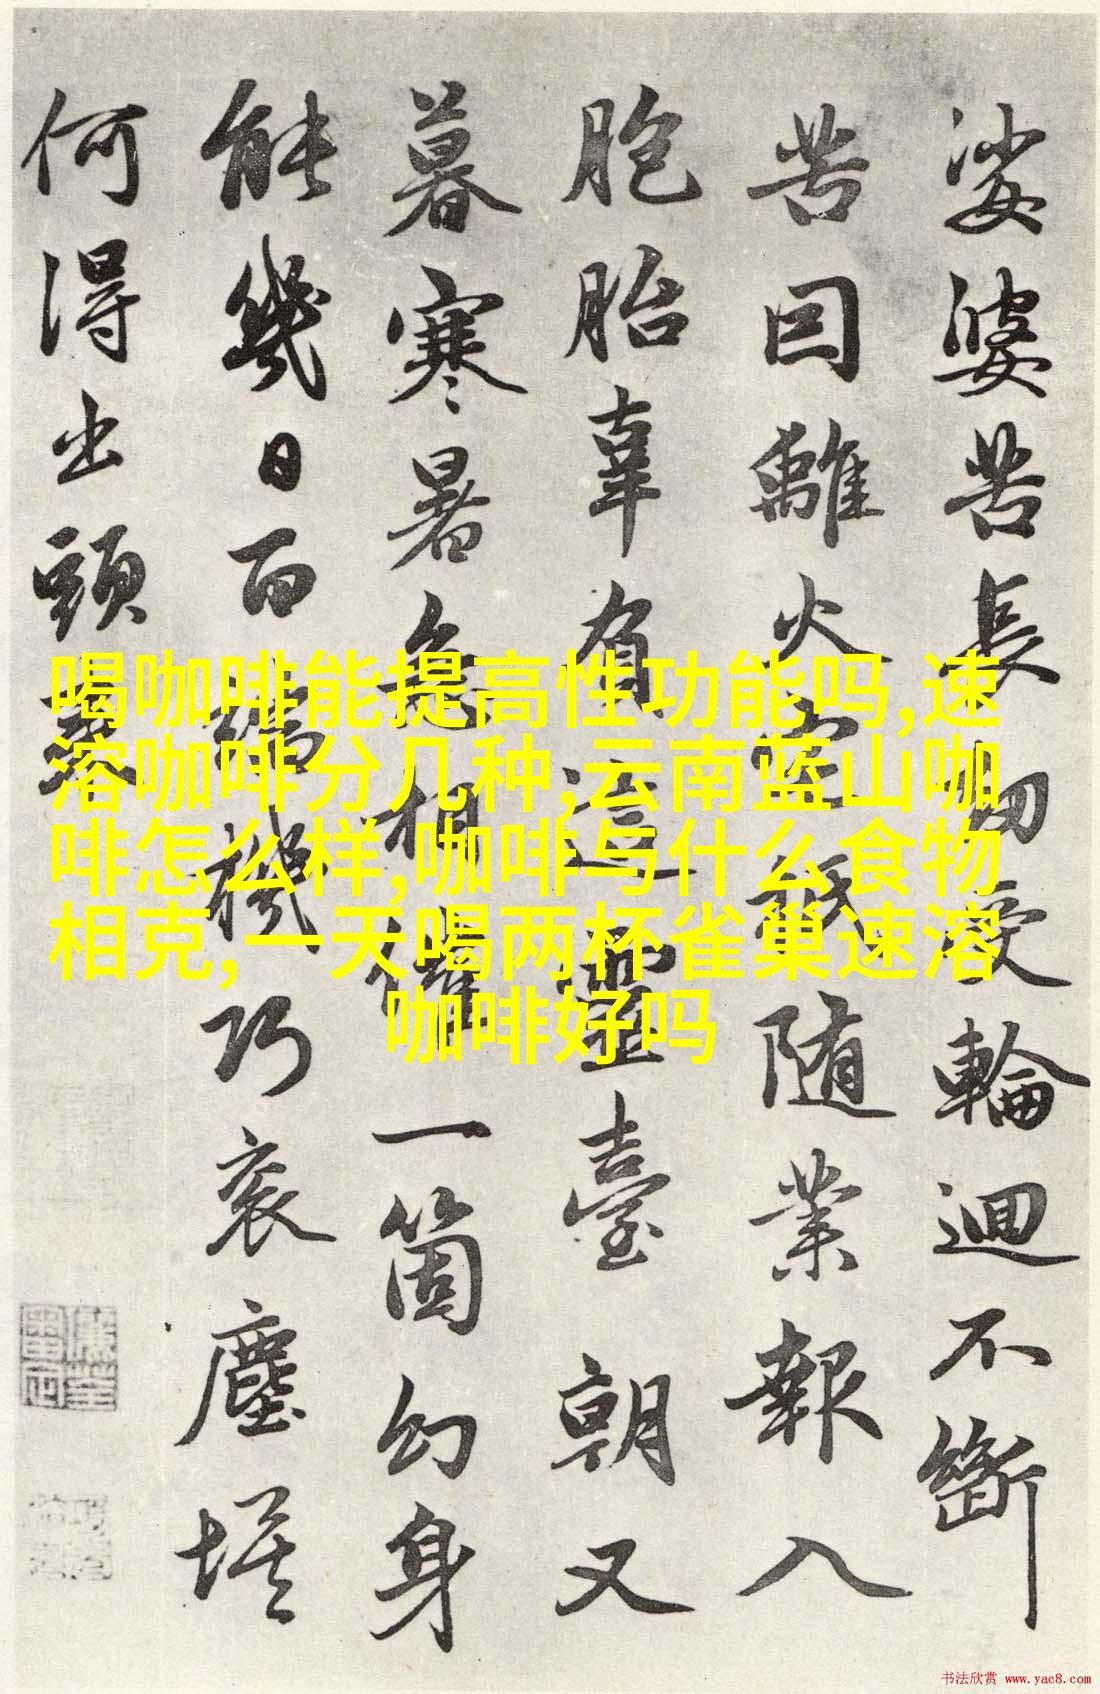 娑婆苦長劫受輪迴不斷
苦囙離火宅秪随業報入
胞胎辜負這靈臺朝又
暮寒暑急相催一箇幻身
能幾日百端機巧衮塵埃
何得出頭來
喝咖啡能提高性功能吗,速
溶咖啡分几种,云南蓝山咖
啡怎么样,咖啡与什么食物
相克,一天喝两杯雀巢速溶
咖啡好吗
书法欣赏 www.yac8.com